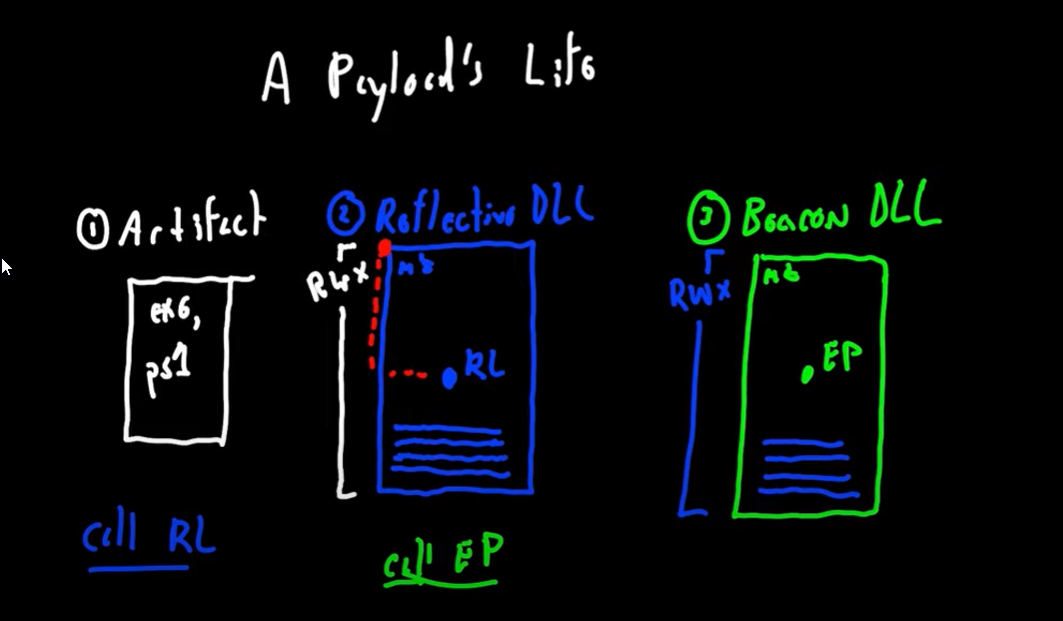 A Payload's Life
① Artifact
exe,
ps1
call RL
② Reflective DLL
RWX
MZ
RL
call EP
③ Beacon DLL
RWX
MZ
EP